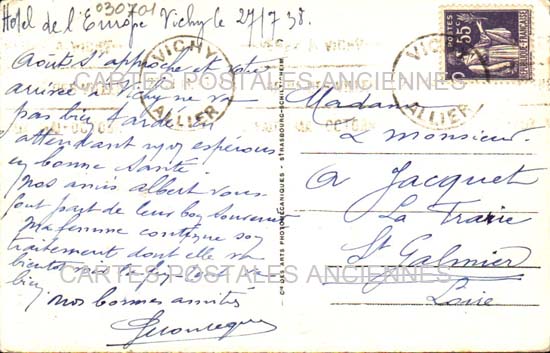 030701
Hotel de l'Europe Vichy le 27/7/38.
Août s'approche et votre
arrivée à Vichy ne va
pas bien tarder en
attendant nous espérons
en bonne santé.
nos amis albert vous
font part de leur bon souvenir
ma femme continue son
traitement dont elle va
bientôt
bien
nos bonnes amitiés
Madame
& monsieur
A Jacquet
La
St Galmier
Loire
VICHY
ALLIER
VICHY
ALLIER
55c
CARTES POSTALES ANCIENNES
CARTES POSTALES ANCIENNES
CIE DES ARTS PHOTOMÉCANIQUES - STRASBOURG-SCHILTIGHEIM